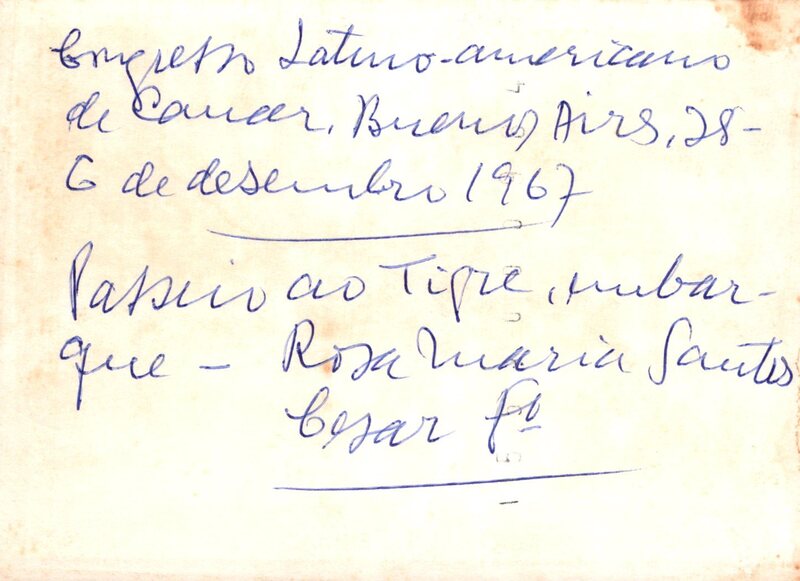 Congresso Latino-americano
de Cancer, Buenos Aires, 28-
6 de desembro 1967
Passeio ao Tigre, embar-
que - Rosa Maria Santos
Cesar Fº